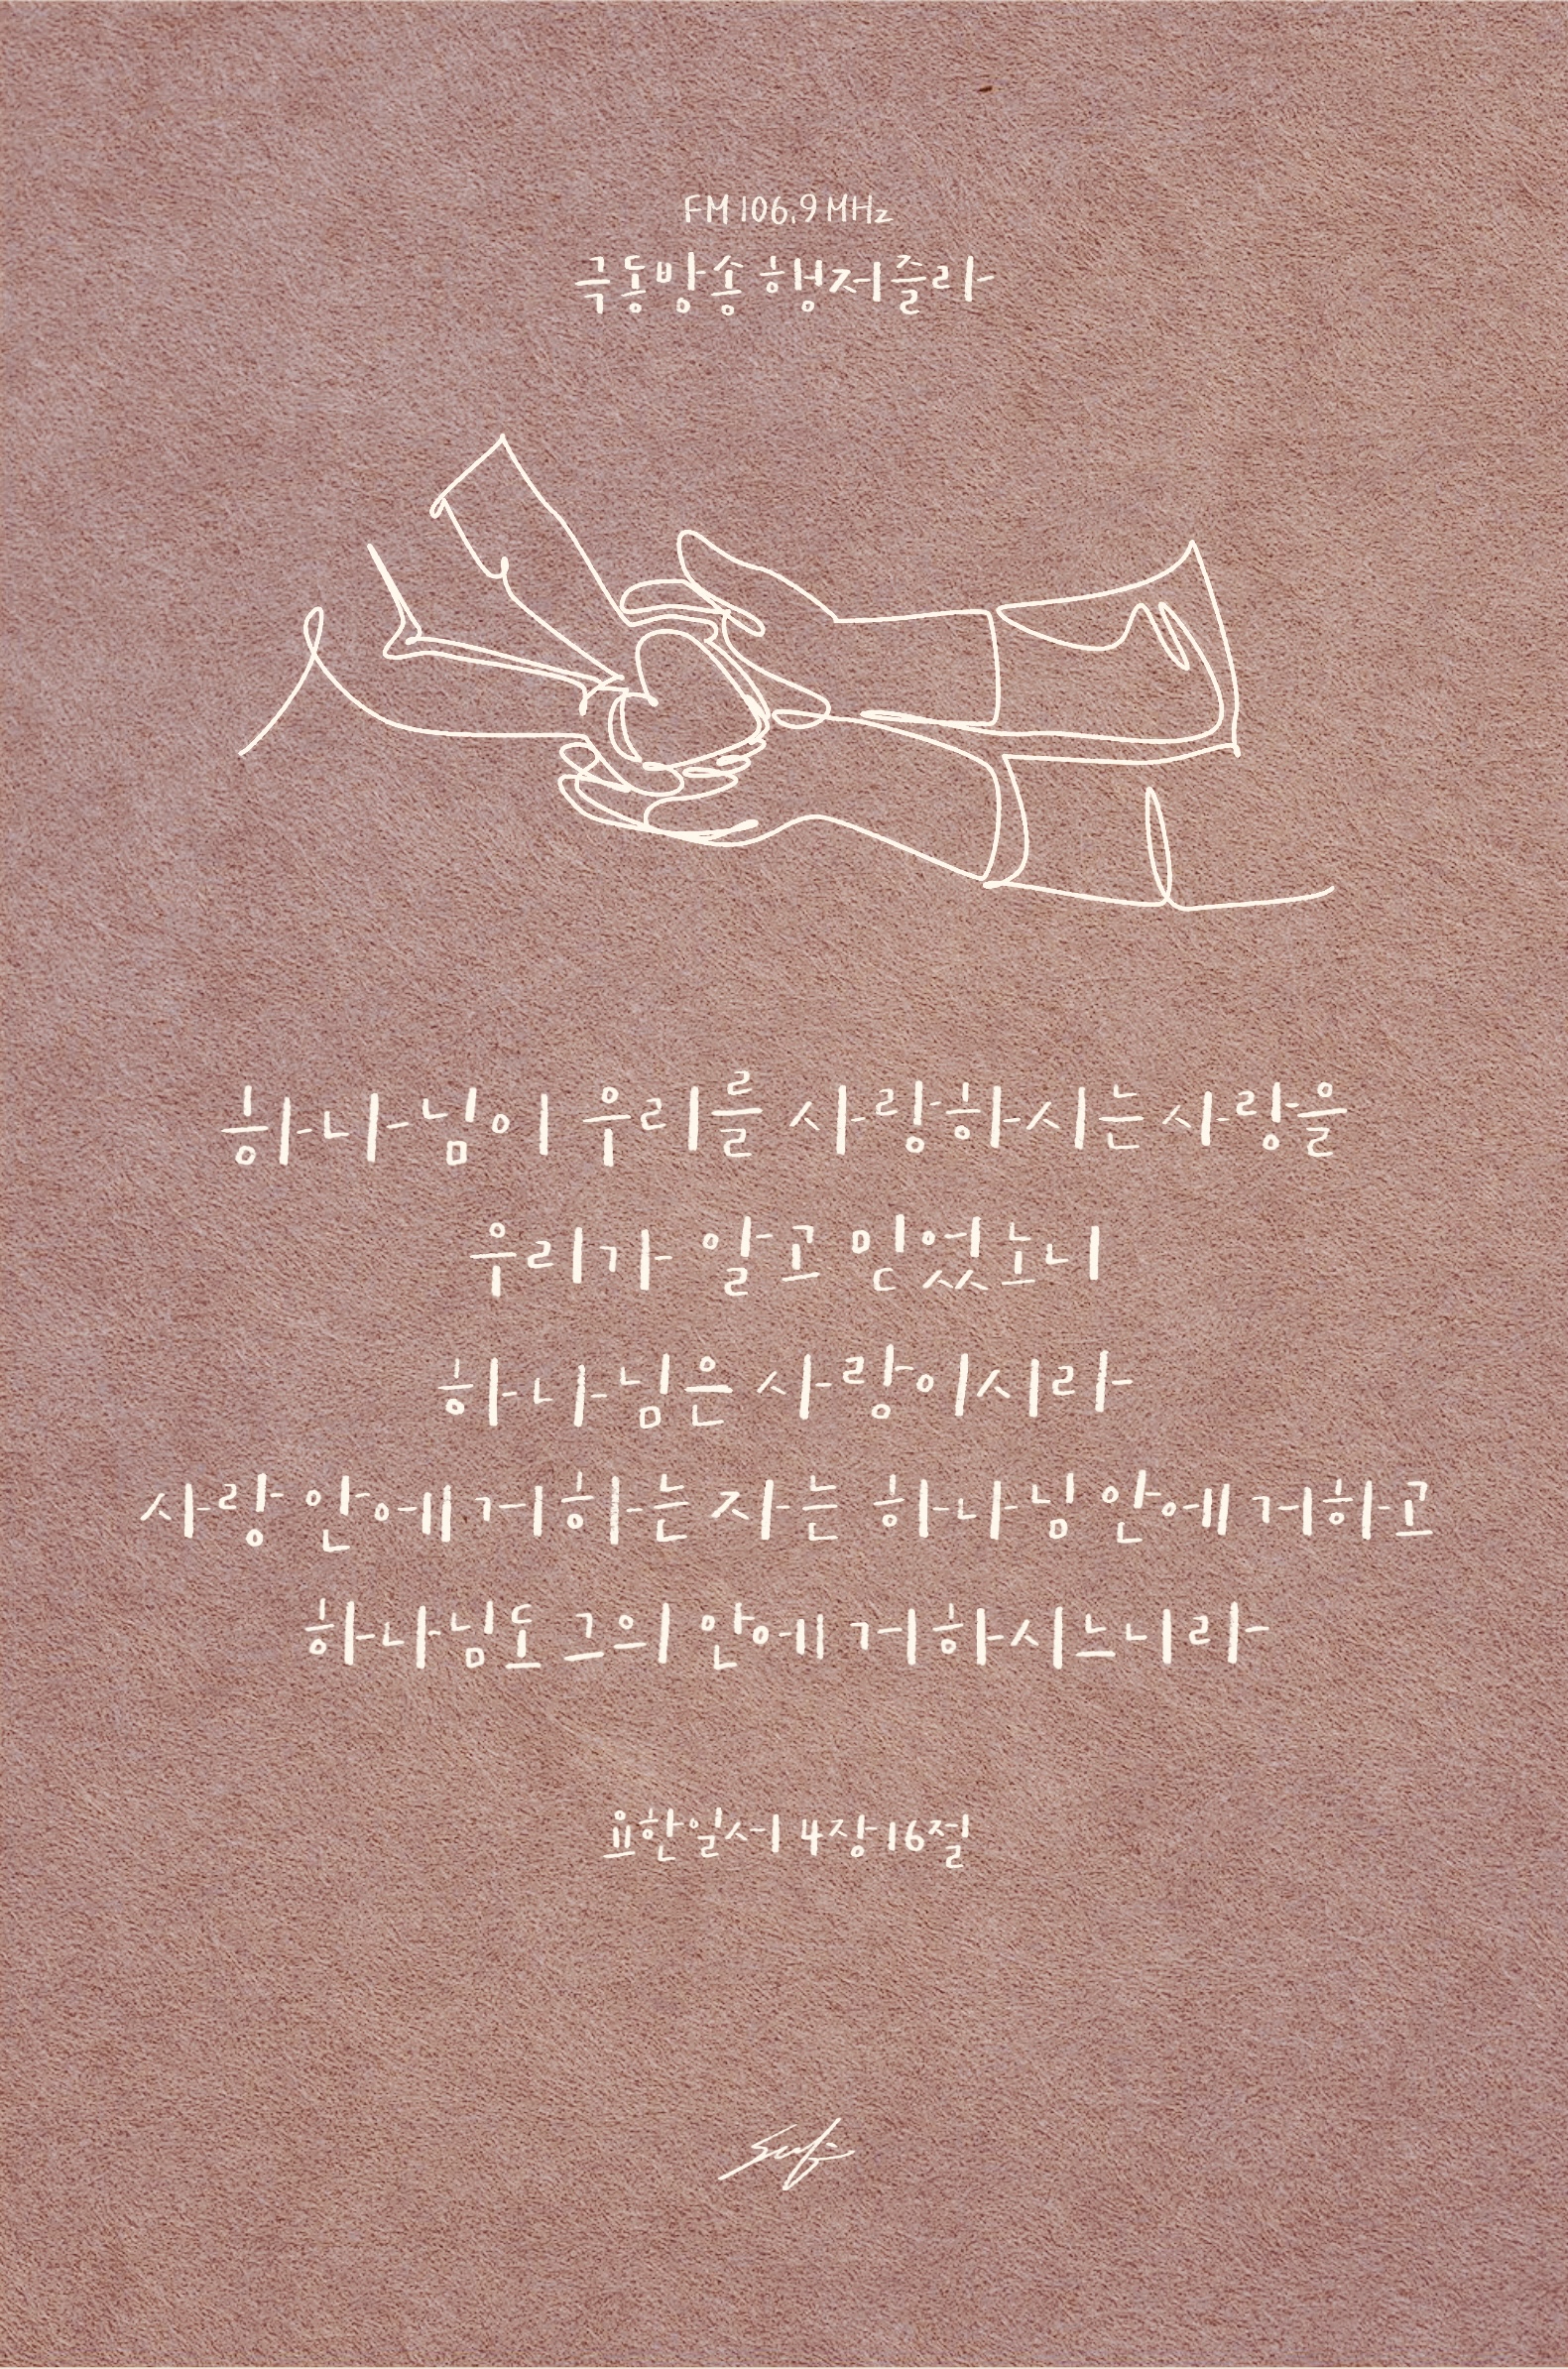 FM 106.9 MHz
극동방송 행저즐라
하나님이 우리를 사랑하시는 사랑을
우리가 알고 믿었노니
하나님은 사랑이시라
사랑 안에 거하는 자는 하나님 안에 거하고
하나님도 그의 안에 거하시느니라
요한일서 4장 16절